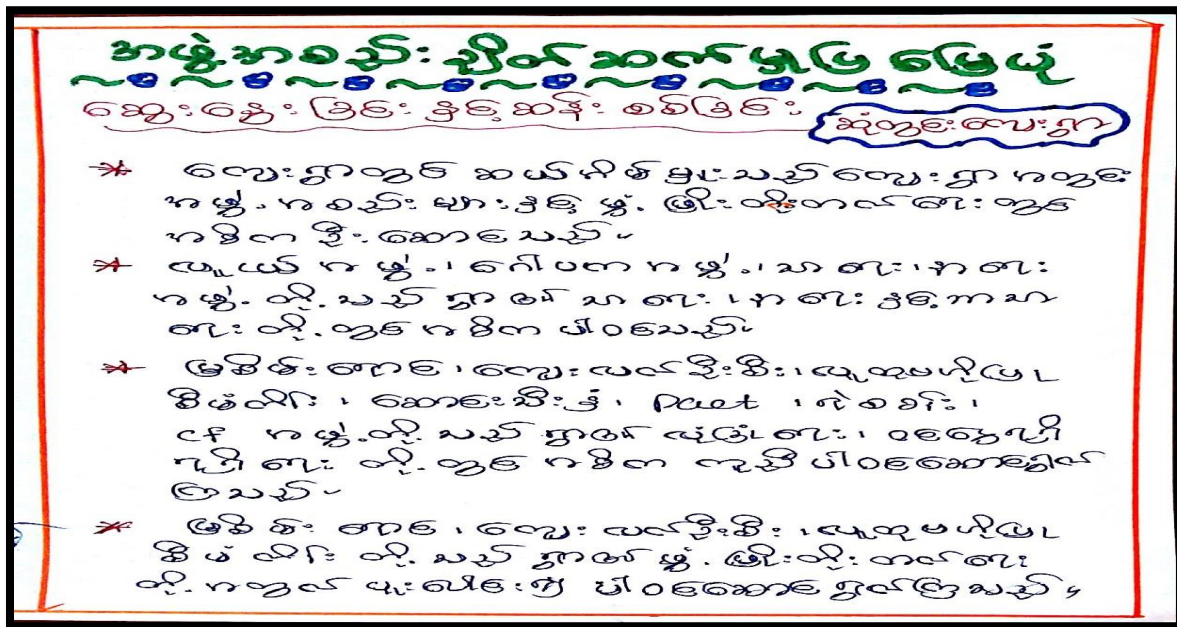 အဖွဲ့အစည်းချိတ်ဆက်မှုပြ မြေပုံ
ဆွေးနွေးခြင်းနှင့်ဆန်းစစ်ခြင်း
ဆုံတွင်းကျေးရွာ
* ကျေးရွာတွင် ဆယ်အိမ်မှူးသည် ကျေးရွာအတွင်း
အဖွဲ့အစည်းများနှင့် ဖွံ့ဖြိုးတိုးတက်ရေးတွင်
အဓိကဦးဆောင်သည်။
* လူငယ်အဖွဲ့၊ ဂေါပကအဖွဲ့၊ သာရေး၊ နာရေး
အဖွဲ့တို့သည် ရွာ၏ သာရေး၊ နာရေးနှင့် ဘာသာ
ရေးတို့တွင် အဓိကပါဝင်သည်။
* မြစိမ်းရောင်၊ ကျေးလက်ဦးစီး၊ လူထုဗဟိုပြု
စီမံကိန်း၊ Pact
CF အဖွဲ့တို့သည် ရွာ၏
ရရှိရေးတို့တွင် အဓိကကူညီပါဝင်ဆောင်ရွက်
ကြသည်။
* မြစိမ်းရောင်၊ ကျေးလက်ဦးစီး၊ လူထုဗဟိုပြု
စီမံကိန်းတို့သည် ရွာ၏ ဖွံ့ဖြိုးတိုးတက်ရေး
တို့အတွက် ပူးပေါင်း၍ ပါဝင်ဆောင်ရွက်ကြသည်။